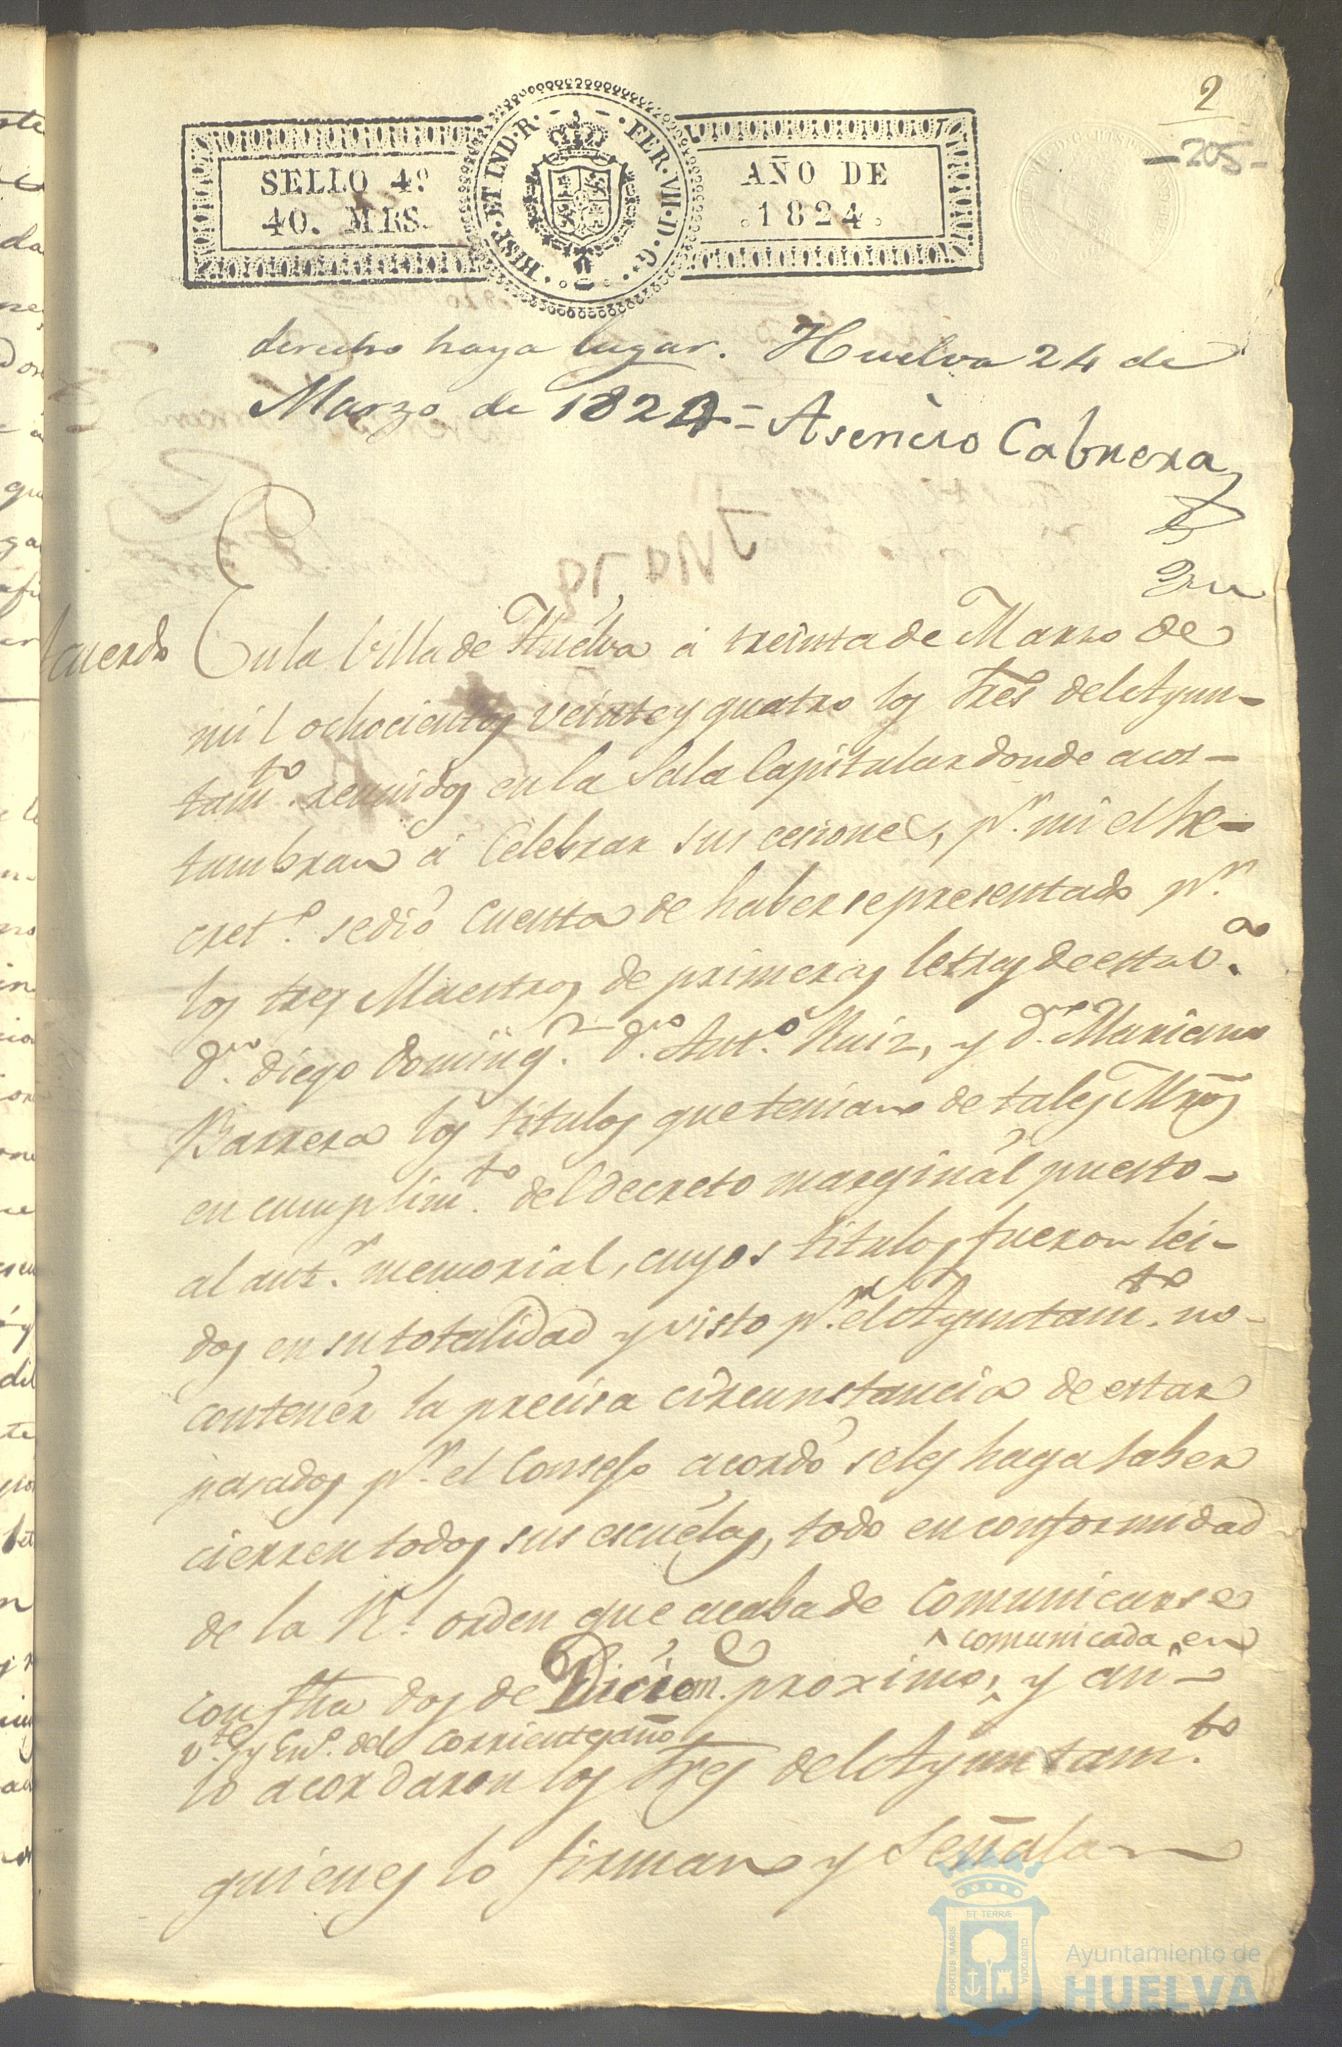 2
-205-
SELLO 4º
40. MRS.
HISP. ET IND. R. FER. VII. D. G.
AÑO DE
1824.
derecho haya lugar. Huelva 24 de
Marzo de 1824= Asencio Cabrera
Acuerdo En la Villa de Huelva á treinta de Marzo de
mil ochocientos veinte y quatro los Sres del Ayun-
tam.to reunidos en la Sala Capitular donde acos-
tumbran á Celebrar sus cesiones, p.r mi el Se-
cret.o se dió Cuenta de haberse presentado p.r
los tres Maestros de primeras letras de esta V.a
D.n Diego Doming.z D.n Ant.o Ruiz, y D.n Mariano
Barrera los titulos que tenian de tales Mrõs
en cumplim.to del Decreto marginal puesto
al ant.r memorial, cuyos titulos fueron lei-
dos en su totalidad y visto p.r el Ayuntam.to no
contenér la precisa circunstancia de estar
pasados p.r el Consejo acordó se les haga saber
cierren todos sus escuelas, todo en conformidad
de la R.l orden que acaba de Comunicarse
^ comunicada en
con fha dos de Diciem.e proximo, y asi
v.te y En.o del corriente año
lo acordaron los Sres del Ayuntam.to
quienes lo firman y Señalan
PORTUS MARIS ET TERRÆ CUSTODIA
Ayuntamiento de
HUELVA